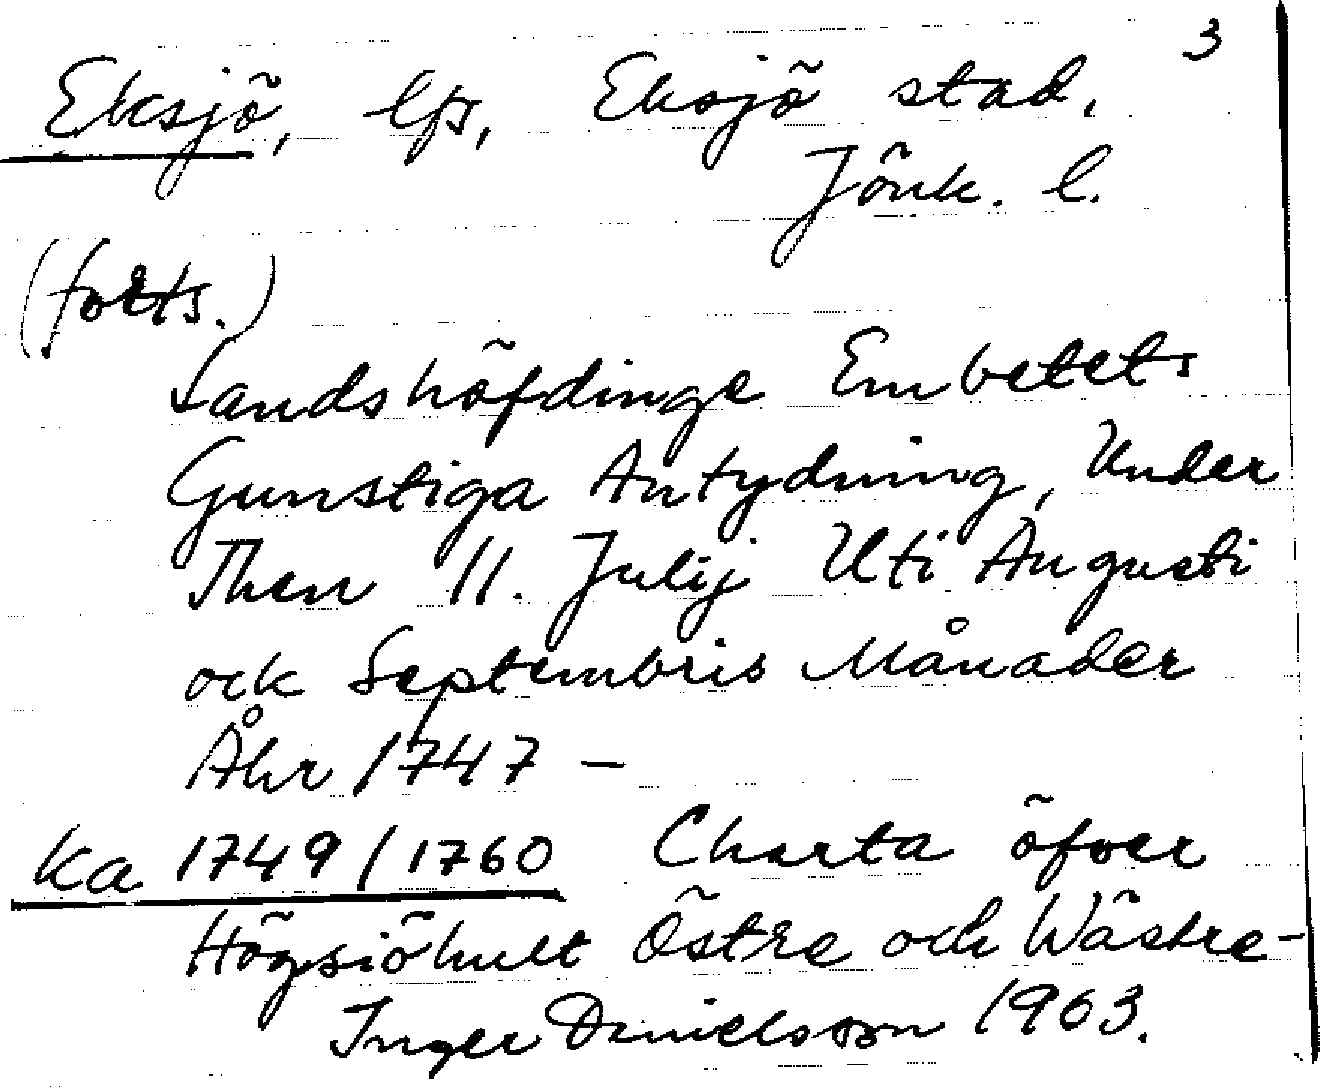 3
Eksjö, lfs, Eksjö stad.
Jönk. l.
(forts.)
Landshöfdinge Embetets
Gunstiga Antydning, Under
Then 11. Julij Uti Augusti
ock Septembris Månader
Åhr 1747 –
Ka 1749/1760 Charta öfver
Högsiöhult Östre och Wästre-
Inger Danielsson 1963.